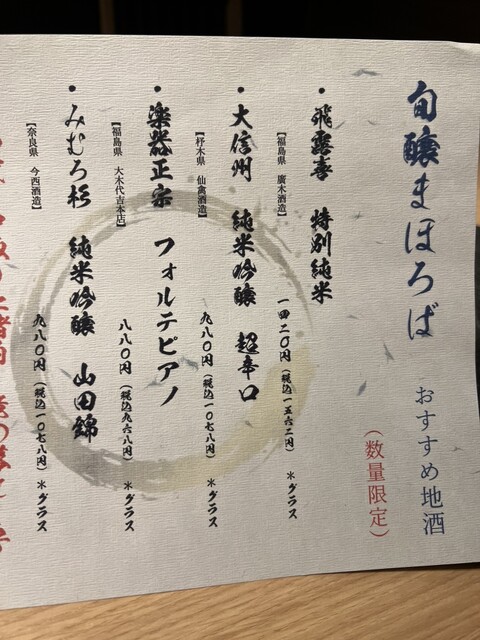 旬醸まほろば おすすめ地酒
（数量限定）
・飛露喜 特別純米
【福島県 廣木酒造】 一四二〇円（税込一五六二円）＊グラス
・大信州 純米吟醸 超辛口
【杤木県 仙禽酒造】 九八〇円（税込一〇七八円）＊グラス
・楽器正宗 フォルテピアノ
【福島県 大木代吉本店】 八八〇円（税込九六八円）＊グラス
・みむろ杉 純米吟醸 山田錦
【奈良県 今西酒造】 九八〇円（税込一〇七八円）＊グラス